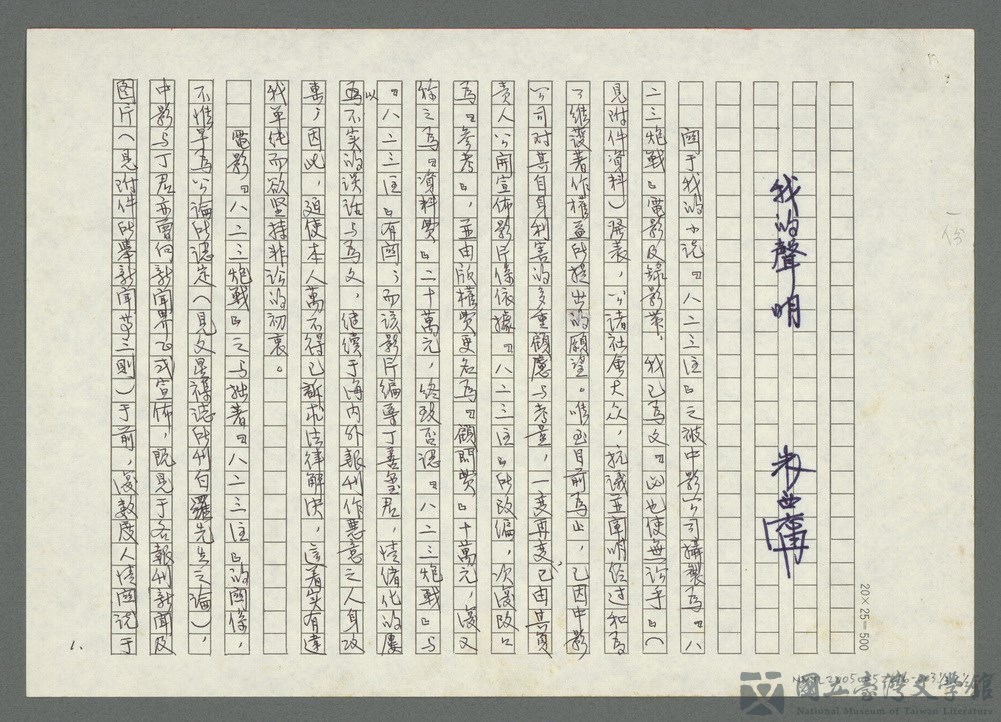 我的聲明
朱西甯
關于我的小說『八二三注』之被中影公司攝製為『八
二三炮戰』電影及錄影帶，我已為文『此也使無訟乎』（
見附件資料）發表，公諸社會大众，抗議並聲明经过和為
了維護著作權益所提出的願望。惟至目前為止，已因中影
公司对其自身利害的多重顧慮与考量，一变再变，已由其負
責人公開宣佈影片係依據『八二三注』所改编，次復改口
為『參考』，並由版權費更名為『顧問費』十萬元，復又
称之為『資料費』二十萬元，终致否認『八二三炮戰』与
『八二三注』有関；而該影片編導丁善璽君，情绪化的屢
以不实的談話与為文，继续于海内外報刊作惡意之人身攻
擊；因此，迫使本人萬不得已訴求法律解決，這着实有違
我单纯而欲坚持非訟的初衷。
電影『八二三炮戰』之与拙著『八二三注』的関係，
不惟早為公論所認定（見文星雜誌所刊白羅先生之論），
中影与丁君亦曾向新闻界正式宣佈，既見于各報刊新闻及
图片（見附件所舉新闻第三則）于前，復數度人情関說于
20×25=500
1.
國立臺灣文學館
National Museum of Taiwan Literature